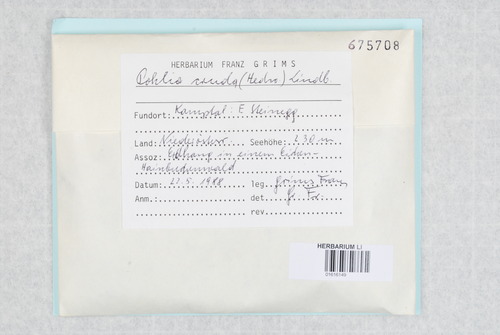 675708
HERBARIUM FRANZ GRIMS
Pohlia cruda (Hedw.) Lindb
Fundort: Kamptal: E Steinegg
Land: Niederösterr. Seehöhe: 230 m
Assoz: Erdhang in einem Eichen-
Hainbuchenwald
Datum: 21.5.1988 leg. Grims Franz
Anm.: det. Gr. Fr.
rev.
HERBARIUM LI